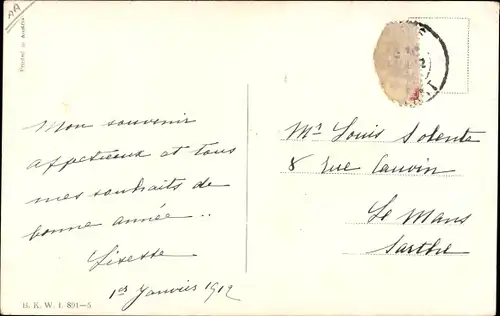 AA
Printed in Austria
Mon souvenir
affectueux et tous
mes souhaits de
bonne année..
Lisette
1er Janvier 1912
Mr Louis Solente
8 Rue Cauvin
Le Mans
Sarthe
B. K. W. I. 891-5